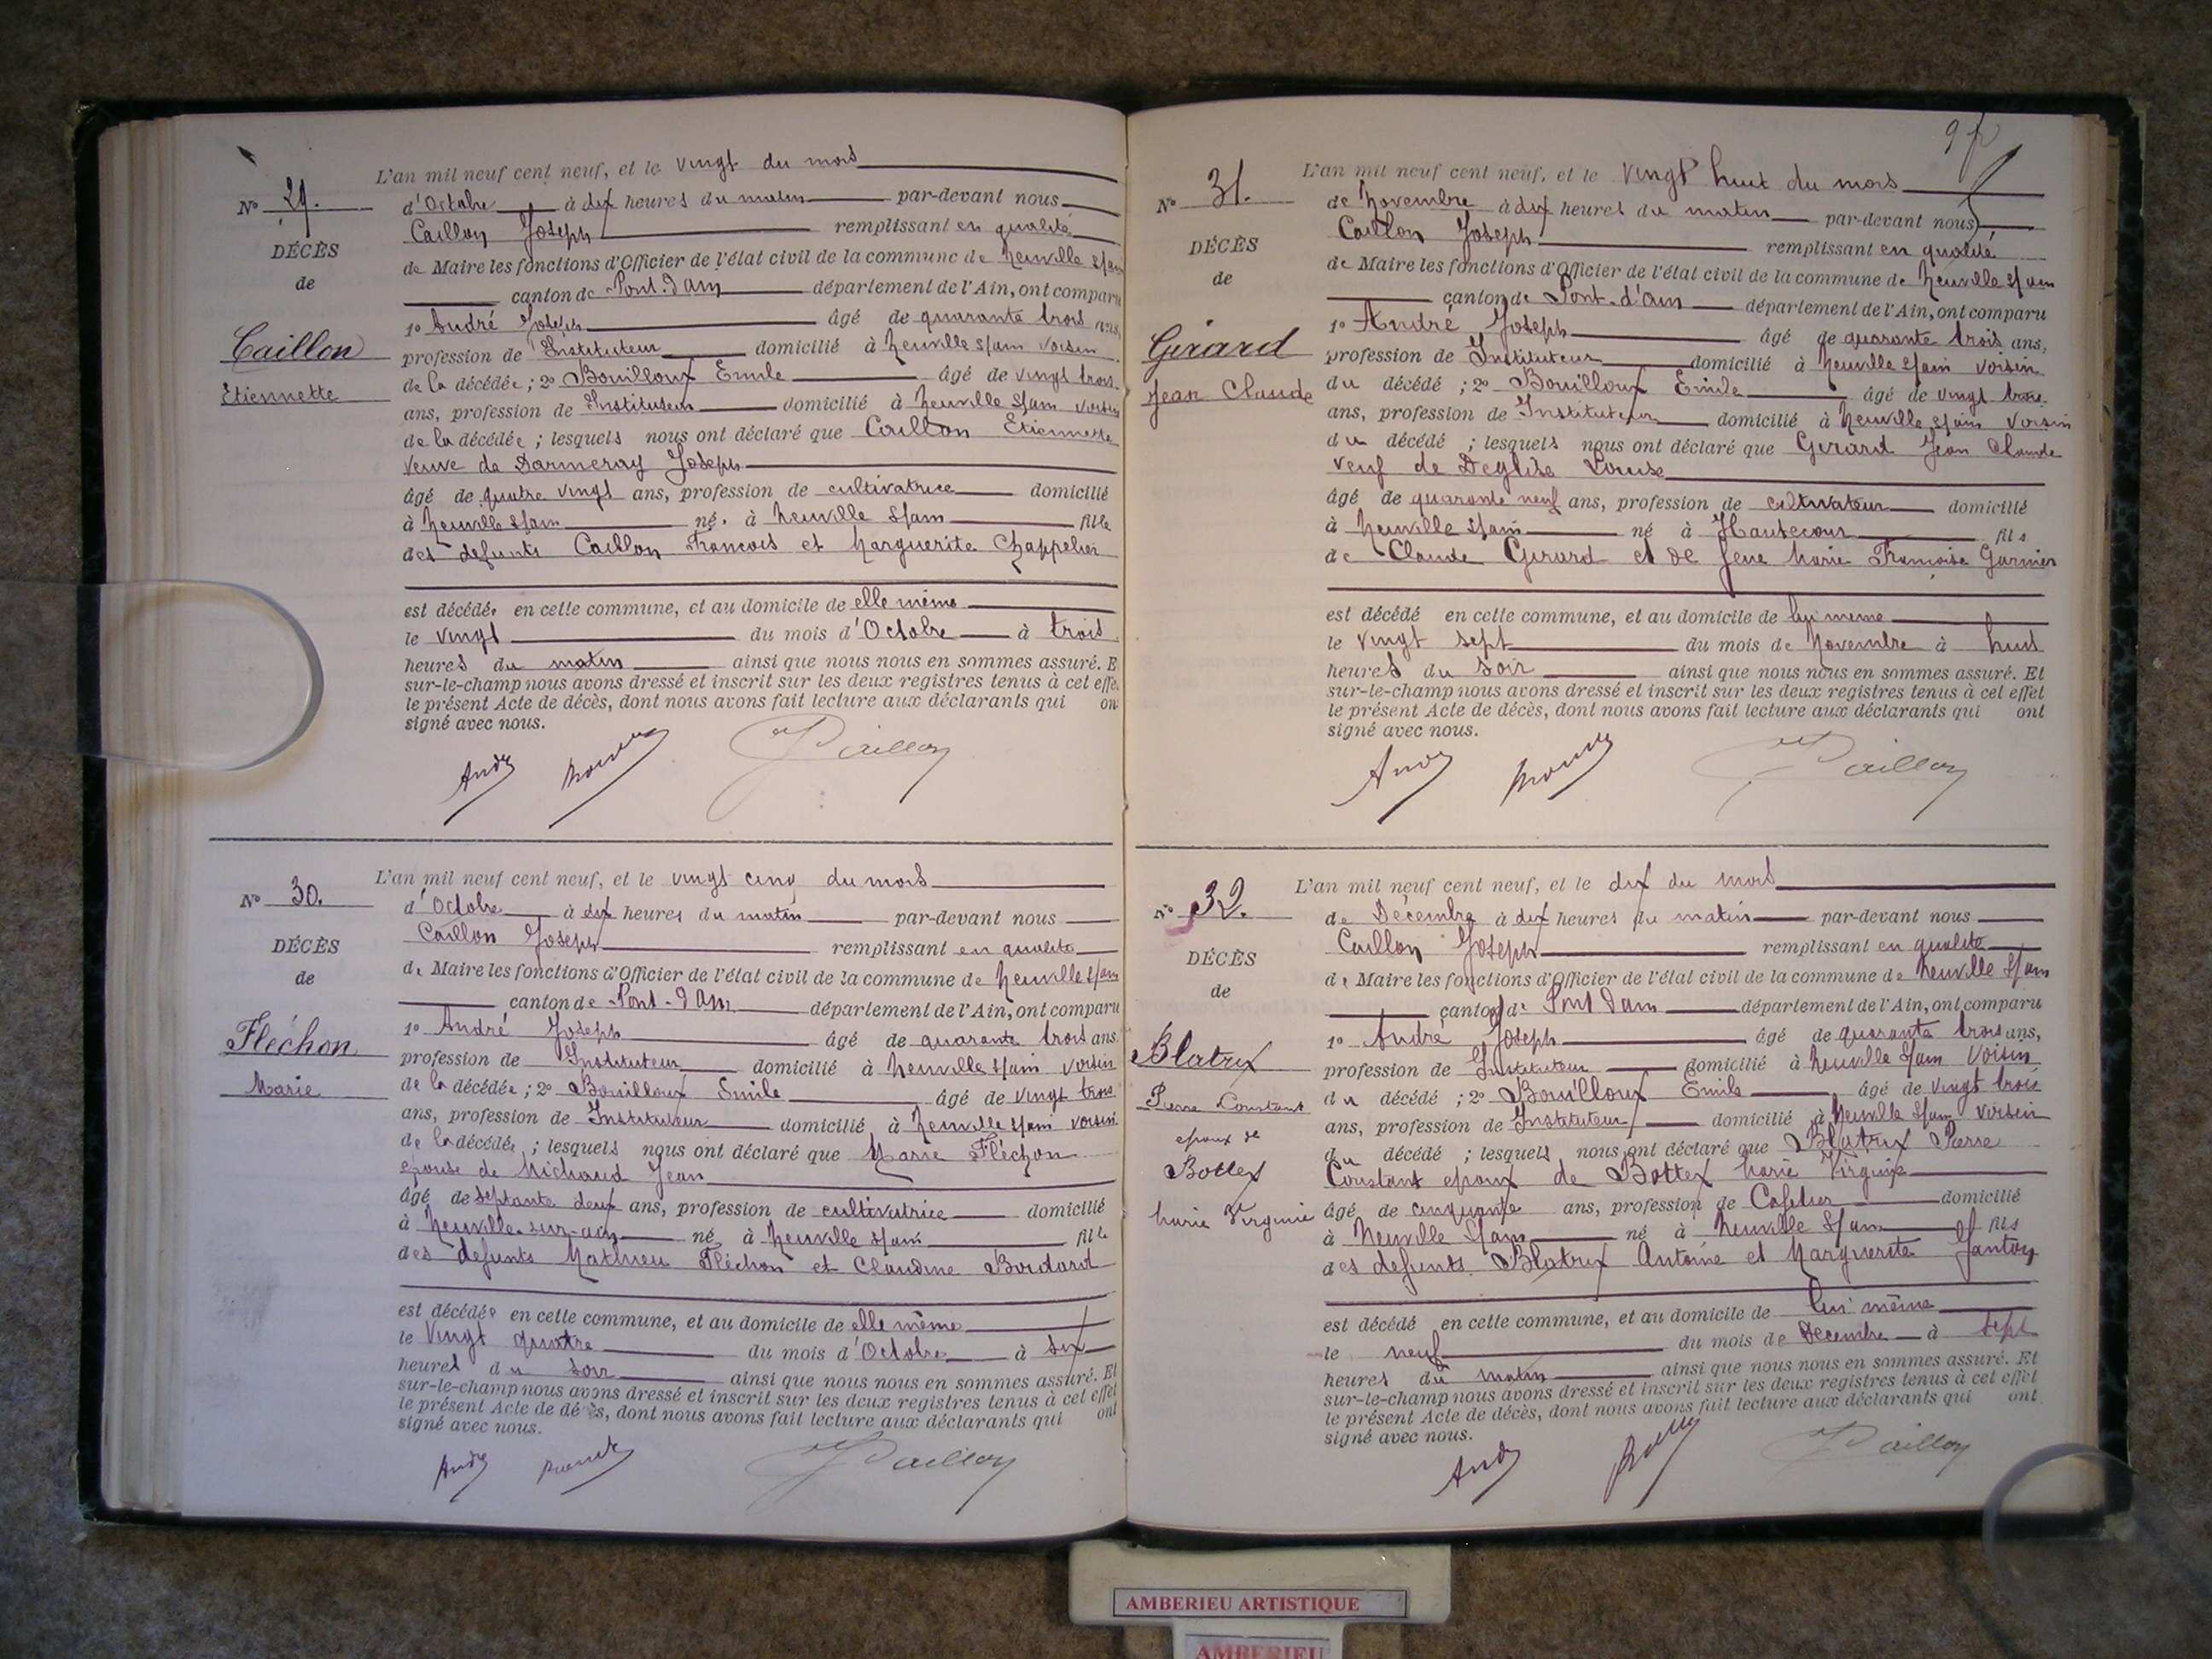 L'an mil neuf cent neuf, et le vingt du mois
N° 29. d'Octobre à dix heures du matin par-devant nous
Caillon Joseph remplissant en qualité
DÉCÈS de Maire les fonctions d'Officier de l'état civil de la commune de Neuville s/ain
de canton de Pont-d'Ain département de l'Ain, ont comparu
1° André Joseph âgé de quarante trois ans,
Caillon profession de Instituteur domicilié à Neuville s/ain voisin
Etiennette de la décédée ; 2° Bouilloux Emile âgé de vingt trois
ans, profession de Instituteur domicilié à Neuville s/ain voisin
de la décédée ; lesquels nous ont déclaré que Caillon Etiennette
veuve de Darmeray Joseph
âgé de quatre vingt ans, profession de cultivatrice domicilié
à Neuville s/ain né à Neuville s/ain fille
des defunts Caillon Francois et Marguerite Chappelier
est décédée en cette commune, et au domicile de elle même
le vingt du mois d'Octobre à trois
heures du matin ainsi que nous nous en sommes assuré. E
sur-le-champ nous avons dressé et inscrit sur les deux registres tenus à cet effe
le présent Acte de décès, dont nous avons fait lecture aux déclarants qui on
signé avec nous.
André Caillon
L'an mil neuf cent neuf, et le vingt cinq du mois
N° 30. d'Octobre à dix heures du matin par-devant nous
Caillon Joseph remplissant en qualite
DÉCÈS de Maire les fonctions d'Officier de l'état civil de la commune de Neuville s/ain
de canton de Pont-d'Ain département de l'Ain, ont comparu
1° André Joseph âgé de quarante trois ans
Fléchon profession de Instituteur domicilié à Neuville s/ain voisin
Marie de la décédée ; 2° Bouilloux Emile âgé de vingt trois
ans, profession de Instituteur domicilié à Neuville s/ain voisin
de la décédée ; lesquels nous ont déclaré que Marie Fléchon
epouse de Michaud Jean
âgé de septante deux ans, profession de cultivatrice domicilié
à Neuville-sur-ain né à Neuville s/ain fille
des defunts Mathieu Fléchon et Claudine Boudard
est décédée en cette commune, et au domicile de elle même
le vingt quatre du mois d'Octobre à six
heures du soir ainsi que nous nous en sommes assuré. Et
sur-le-champ nous avons dressé et inscrit sur les deux registres tenus à cet effet
le présent Acte de décès, dont nous avons fait lecture aux déclarants qui ont
signé avec nous.
André Caillon
L'an mil neuf cent neuf, et le vingt huit du mois
N° 31. de Novembre à dix heures du matin par-devant nous
Caillon Joseph remplissant en qualité
DÉCÈS de Maire les fonctions d'Officier de l'état civil de la commune de Neuville s/ain
de canton de Pont-d'ain département de l'Ain, ont comparu
1° André Joseph âgé de quarante trois ans,
Girard profession de Instituteur domicilié à Neuville s/ain voisin
Jean Claude du décédé ; 2° Bouilloux Emile âgé de vingt trois
ans, profession de Instituteur domicilié à Neuville s/ain voisin
du décédé ; lesquels nous ont déclaré que Girard Jean Claude
veuf de Deglise Louise
âgé de quarante neuf ans, profession de cultivateur domicilié
à Neuville s/ain né à Hautecour fils
de Claude Girard et de feue Marie Francoise Garnier
est décédé en cette commune, et au domicile de lui meme
le vingt sept du mois de Novembre à huit
heures du soir ainsi que nous nous en sommes assuré. Et
sur-le-champ nous avons dressé et inscrit sur les deux registres tenus à cet effet
le présent Acte de décès, dont nous avons fait lecture aux déclarants qui ont
signé avec nous.
André Caillon
L'an mil neuf cent neuf, et le dix du mois
N° 32. de Décembre à dix heures du matin par-devant nous
Caillon Joseph remplissant en qualite
DÉCÈS de Maire les fonctions d'Officier de l'état civil de la commune de Neuville s/ain
de canton de Pont d'ain département de l'Ain, ont comparu
1° André Joseph âgé de quarante trois ans,
Blatrix profession de Instituteur domicilié à Neuville s/ain voisin
Pierre Constant du décédé ; 2° Bouilloux Emile âgé de vingt trois
ans, profession de Instituteur domicilié à Neuville s/ain voisin
epoux de du décédé ; lesquels nous ont déclaré que Blatrix Pierre
Bottex Constant epoux de Bottex Marie Virginie
Marie Virginie âgé de cinquante ans, profession de Cafetier domicilié
à Neuville s/ain né à Neuville s/ain fils
des defunts Blatrix Antoine et Marguerite Jantoy
est décédé en cette commune, et au domicile de lui même
le neuf du mois de Decembre à sept
heures du matin ainsi que nous nous en sommes assuré. Et
sur-le-champ nous avons dressé et inscrit sur les deux registres tenus à cet effet
le présent Acte de décès, dont nous avons fait lecture aux déclarants qui ont
signé avec nous.
André Caillon
AMBERIEU ARTISTIQUE
AMBERIEU